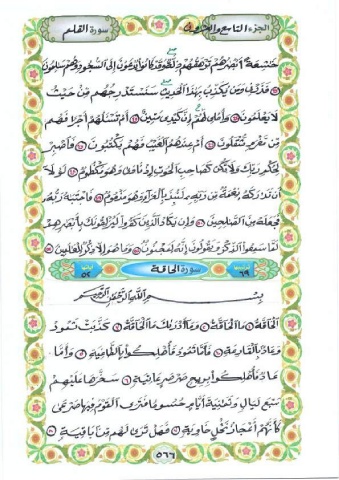 الجزء التاسع والعشرون
سورة القلم
خَٰشِعَةً أَبْصَٰرُهُمْ تَرْهَقُهُمْ ذِلَّةٌ وَقَدْ كَانُوا۟ يُدْعَوْنَ إِلَى ٱلسُّجُودِ وَهُمْ سَٰلِمُونَ
فَذَرْنِى وَمَن يُكَذِّبُ بِهَٰذَا ٱلْحَدِيثِ سَنَسْتَدْرِجُهُم مِّنْ حَيْثُ
لَا يَعْلَمُونَ وَأُمْلِى لَهُمْ إِنَّ كَيْدِى مَتِينٌ أَمْ تَسْـَٔلُهُمْ أَجْرًا فَهُم
مِّن مَّغْرَمٍ مُّثْقَلُونَ أَمْ عِندَهُمُ ٱلْغَيْبُ فَهُمْ يَكْتُبُونَ فَٱصْبِرْ
لِحُكْمِ رَبِّكَ وَلَا تَكُن كَصَاحِبِ ٱلْحُوتِ إِذْ نَادَىٰ وَهُوَ مَكْظُومٌ لَّوْلَآ
أَن تَدَٰرَكَهُۥ نِعْمَةٌ مِّن رَّبِّهِۦ لَنُبِذَ بِٱلْعَرَآءِ وَهُوَ مَذْمُومٌ فَٱجْتَبَٰهُ رَبُّهُۥ
فَجَعَلَهُۥ مِنَ ٱلصَّٰلِحِينَ وَإِن يَكَادُ ٱلَّذِينَ كَفَرُوا۟ لَيُزْلِقُونَكَ بِأَبْصَٰرِهِمْ
لَمَّا سَمِعُوا۟ ٱلذِّكْرَ وَيَقُولُونَ إِنَّهُۥ لَمَجْنُونٌ وَمَا هُوَ إِلَّا ذِكْرٌ لِّلْعَٰلَمِينَ
ترتيبها ٦٩ سورة الحاقة آياتها ٥٢
بِسْمِ ٱللَّهِ ٱلرَّحْمَٰنِ ٱلرَّحِيمِ
ٱلْحَآقَّةُ ١ مَا ٱلْحَآقَّةُ ٢ وَمَآ أَدْرَىٰكَ مَا ٱلْحَآقَّةُ ٣ كَذَّبَتْ ثَمُودُ
وَعَادٌۢ بِٱلْقَارِعَةِ ٤ فَأَمَّا ثَمُودُ فَأُهْلِكُوا۟ بِٱلطَّاغِيَةِ ٥ وَأَمَّا
عَادٌ فَأُهْلِكُوا۟ بِرِيحٍ صَرْصَرٍ عَاتِيَةٍ ٦ سَخَّرَهَا عَلَيْهِمْ
سَبْعَ لَيَالٍ وَثَمَٰنِيَةَ أَيَّامٍ حُسُومًا فَتَرَى ٱلْقَوْمَ فِيهَا صَرْعَىٰ
كَأَنَّهُمْ أَعْجَازُ نَخْلٍ خَاوِيَةٍ ٧ فَهَلْ تَرَىٰ لَهُم مِّنۢ بَاقِيَةٍ ٨
٥٦٦